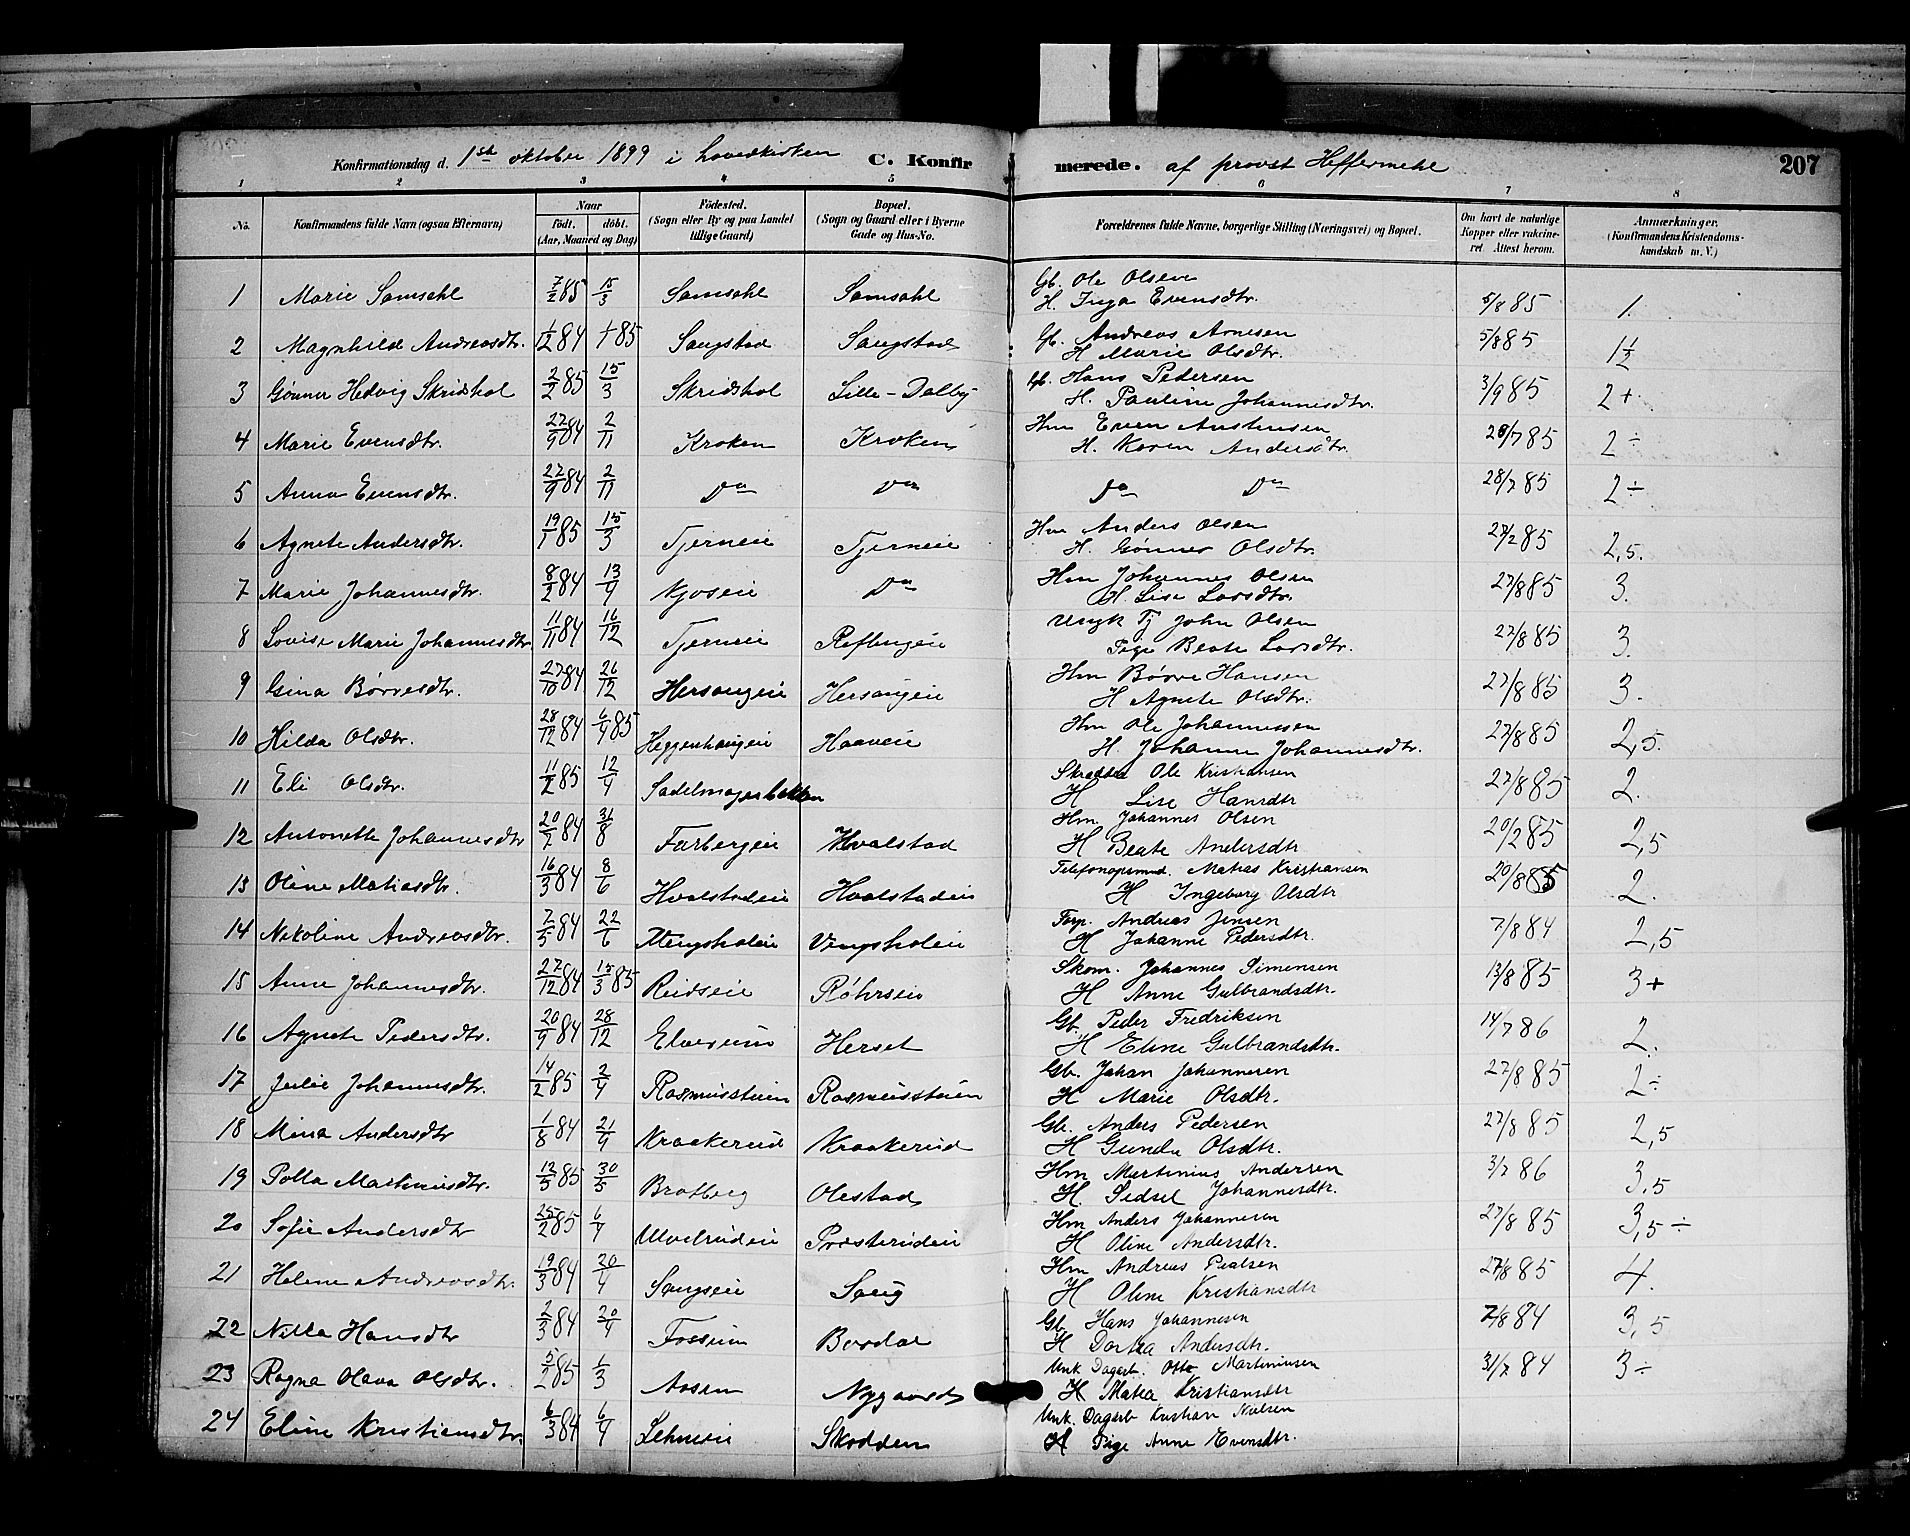 Konfirmationsdag d. 1ste oktober 1899 i hovedkirken C. Konfirmerede. af provst Heffermehl 207
1 2 3 4 5 6 7 8
No. Konfirmandens fulde Navn (ogsaa Efternavn) Naar født. døbt. (Aar, Maaned og Dag) Fødested. (Sogn eller By og paa Landet tillige Gaard) Bopæl. (Sogn og Gaard eller i Byerne Gade og Hus-No. Forældrenes fulde Navne, borgerlige Stilling (Næringsvei) og Bopæl. Om havt de naturlige Kopper eller vakcineret. Attest herom. Anmærkninger. (Konfirmandens Kristendomskundskab m. V.)
1 Marie Samsahl 7/2 85 15/3 Samsahl Samsahl Gb. Ole Olsen
H. Inga Evensdtr. 5/8 85 1.
2 Magnhild Andreasdtr. 1/12 84 85 Saugstad Saugstad Gb. Andreas Arnesen
H Marie Olsdtr. 5/8 85 1½
3 Gønner Hedvig Skridshol 2/2 85 15/3 Skridshol Lille-Dalby Gb. Hans Pedersen
H. Pauline Johannesdtr. 3/9 85 2+
4 Marie Evensdtr. 27/9 84 2/11 Kroken Kroken Hm Even Austensen
H. Karen Andersdtr. 28/7 85 2÷
5 Anna Evensdtr. 27/9 84 2/11 Do Do Do Do 28/7 85 2÷
6 Agnete Andersdtr. 19/1 85 15/3 Tjerneie Tjerneie Hm Anders Olsen
H. Gønner Olsdtr. 27/2 85 2,5.
7 Marie Johannesdtr. 8/2 84 13/4 Kjoseie Do Hm Johannes Olsen
H. Lise Larsdtr. 27/8 85 3.
8 Lovise Marie Johannesdtr. 11/11 84 16/12 Tjerneie Reflingeie Ungk Tj John Olsen
Pige Beate Larsdtr. 27/8 85 3.
9 Gina Børresdtr. 27/10 84 26/12 Hersaugeie Hersaugeie Hm Børre Hansen
H Agnete Olsdtr. 27/8 85 3.
10 Hilda Olsdtr. 28/12 84 6/4 85 Heggenhaugeie Haaveie Hm Ole Johannessen
H. Johanne Johannesdtr. 27/8 85 2,5.
11 Eli Olsdtr. 11/2 85 12/4 Sadelmagerbakken Skrædder Ole Kristiansen
H Lise Hansdtr 27/8 85 2.
12 Antonette Johannesdtr 20/7 84 31/8 Farbergeie Hvalstad Hm. Johannes Olsen
H Beate Andersdtr 20/2 85 2,5
13 Oline Matiasdtr. 16/3 84 8/6 Hvalstadeie Hvalstadeie Telefonopsmd. Matias Kristiansen
H Ingeborg Olsdtr 20/8 85 2.
14 Nikoline Andreasdtr. 7/5 84 22/6 Vingsholeie Vingsholeie Forp. Andreas Jensen
H Johanne Pedersdtr. 7/8 84 2,5
15 Anne Johannesdtr. 27/12 84 15/3 85 Rudseie Røhrseie Skom. Johannes Simensen
H Anne Gulbrandsdtr. 13/8 85 3+
16 Agnete Pedersdtr. 20/9 84 28/12 Elverum Herset Gb. Peder Fredriksen
H Eline Gulbrandsdtr. 14/7 86 2.
17 Julie Johannesdtr. 14/2 85 2/4 Rasmusstuen Rasmusstuen Gb. Johan Johannesen
H Marie Olsdtr. 27/8 85 2÷
18 Mina Andersdtr 1/8 84 21/9 Kraakerud Kraakerud Gb. Anders Pedersen
H Gunda Olsdtr. 27/8 85 2,5
19 Polla Martinusdtr. 12/3 85 30/5 Bratberg Olestad Hm Martinius Andersen
H. Sidsel Johannesdtr. 3/7 86 3.5
20 Sofie Andersdtr 25/2 85 6/4 Ulvelrudeie Præsterudeie Hm Anders Johannesen
H Oline Andersdtr. 27/8 85 3,5÷
21 Helene Andreasdtr. 19/3 84 20/4 Saugseie Saug Hm Andreas Pealsen
H Oline Kristiansdtr 27/8 85 4.
22 Nilla Hansdtr 2/3 84 20/4 Fossum Bordal Gb. Hans Johannesen
H Dortea Andersdtr. 7/8 84 3,5
23 Ragna Olava Olsdtr. 5/2 85 6/3 Aasen Nygaard Unk Dagarb. Otto Martiniusen
H Matea Kristiansdtr 31/7 84 3÷
24 Eline Kristiansdtr. 6/3 84 6/4 Lehneie Skodden Unk. Dagarb Kristian Nielsen
H Pige Anne Evensdtr.